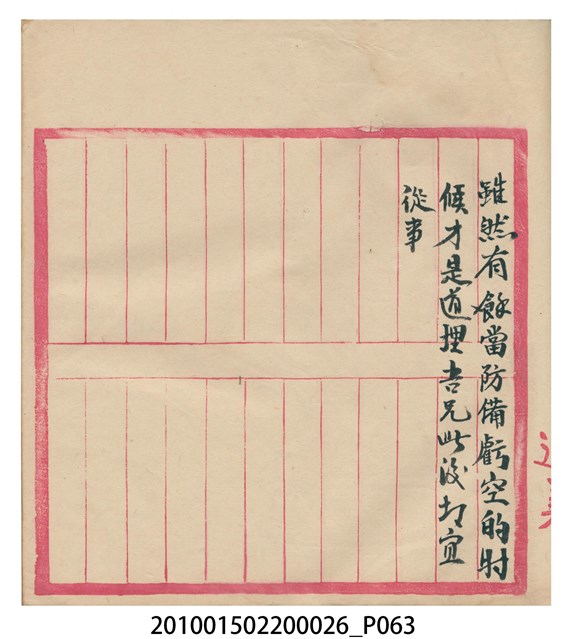 雖然有餘當防備虧空的时
候才是道理吾兄此後切宜
從事